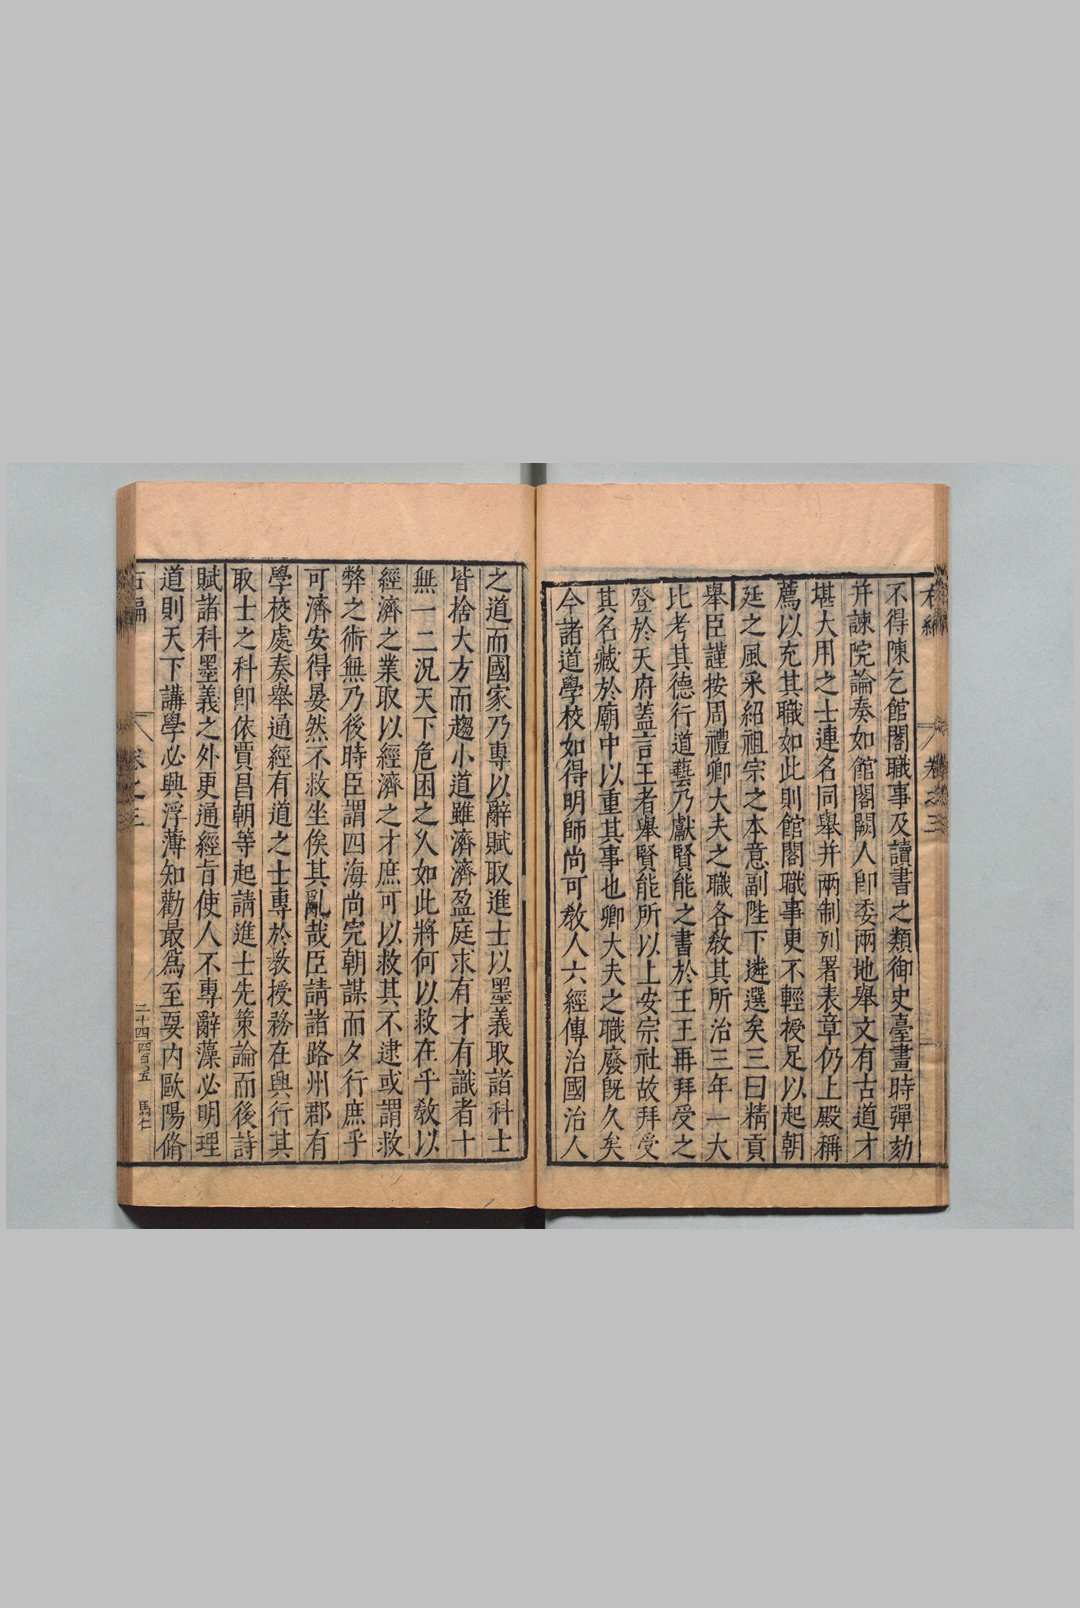 不得陳乞館閣職事及讀書之類御史臺畫時彈劾
并諫院論奏如館閣闕人即委兩地舉文有古道才
堪大用之士連名同舉并兩制列署表章仍上殿稱
薦以充其職如此則館閣職事更不輕授足以起朝
廷之風采紹祖宗之本意副陛下遴選矣三曰精貢
舉臣謹按周禮卿大夫之職各敎其所治三年一大
比考其德行道藝乃獻賢能之書於王王再拜受之
登於天府蓋言王者舉賢能所以上安宗社故拜受
其名藏於廟中以重其事也卿大夫之職廢既久矣
今諸道學校如得明師尚可敎人六經傳治國治人
之道而國家乃專以辭賦取進士以墨義取諸科士
皆捨大方而趨小道雖濟濟盈庭求有才有識者十
無一二况天下危困乏人如此將何以救在乎敎以
經濟之業取以經濟之才庶可以救其不逮或謂救
弊之術無乃後時臣謂四海尚完朝謀而夕行庶乎
可濟安得晏然不救坐俟其亂哉臣請諸路州郡有
學校處奏舉通經有道之士專於敎授務在興行其
取士之科即依賈昌朝等起請進士先策論而後詩
賦諸科墨義之外更通經旨使人不專辭藻必明理
道則天下講學必興浮薄知勸最爲至要内歐陽脩
右編 卷之三 二十四 四百五 馬仁